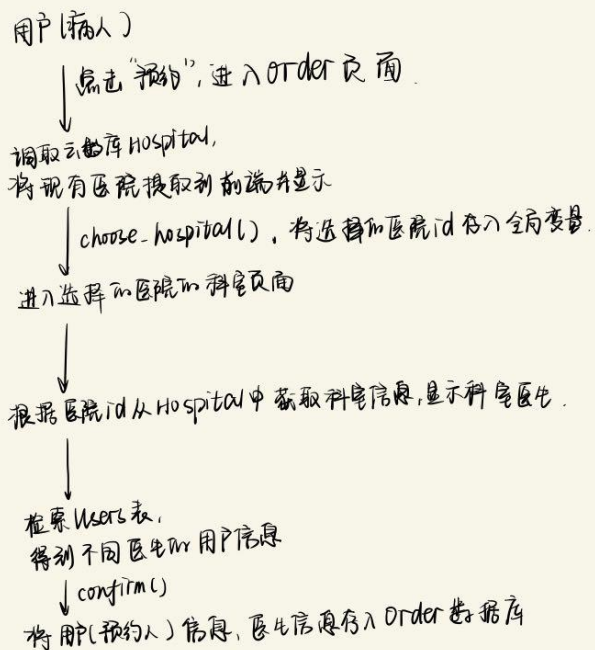 用户(病人)
点击“预约”,进入order页面.
调取云数据库Hospital,
将现有医院提取到前端并显示
choose_hospital(),将选择的医院id存入全局变量.
进入选择的医院的科室页面
根据医院id从Hospital中获取科室信息,显示科室医生.
检索Users表,
得到不同医生的用户信息
confirm()
将用户(预约人)信息、医生信息存入Order数据库